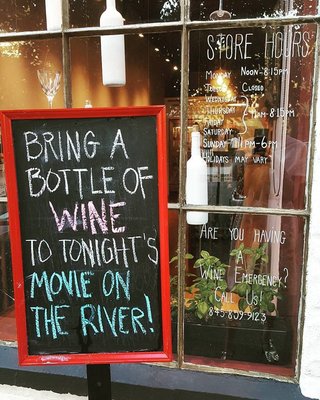 BRING A
BOTTLE OF
WINE
TO TONIGHT'S
MOVIE ON
THE RIVER!
STORE HOURS
MONDAY NOON-8:15PM
TUESDAY CLOSED
WEDNESDAY
THURSDAY
FRIDAY
11AM-8:15PM
SATURDAY
SUNDAY 1PM-6PM
HOLIDAYS MAY VARY
ARE YOU HAVING
A
WINE EMERGENCY?
CALL US!
845-859-9123